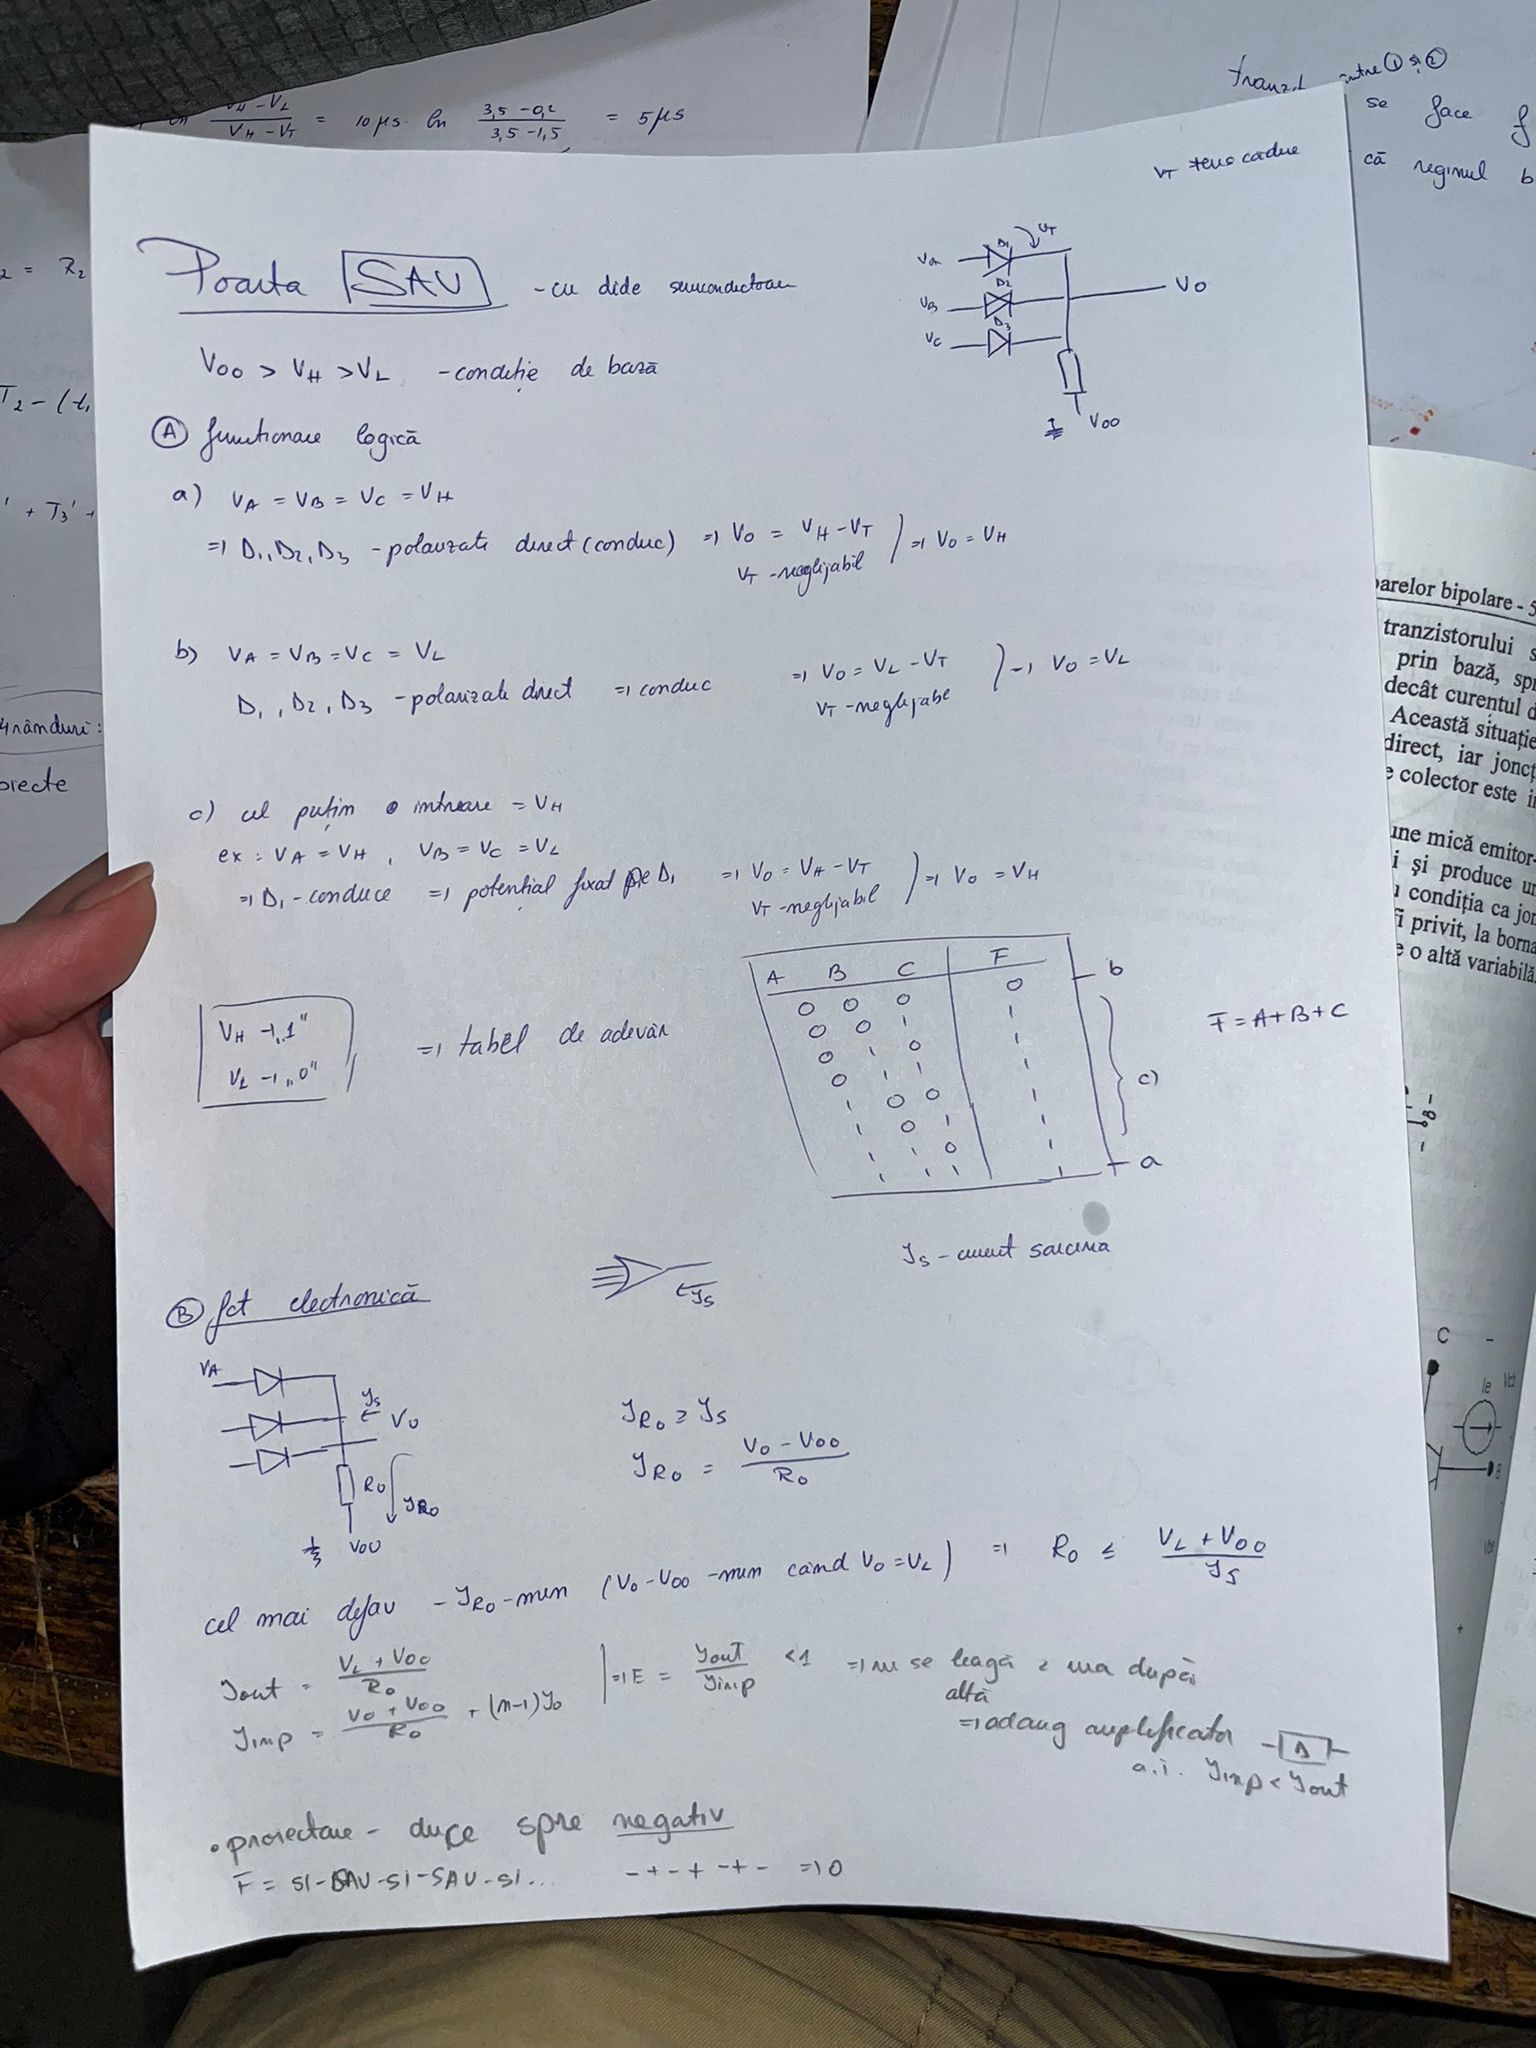 VH - VL
VH - VT
= 10 μs. ln
3,5 - 0,2
3,5 - 1,5
= 5 μs
între ① și ②
se face f
că regimul b
VT
Poarta SAU - cu dide
VOO > VH > VL - condiție de bază
VA
D1
VT
VB
D2
VC
D3
VO
VOO
Ⓐ funcționare logică
a) VA = VB = VC = VH
=> D1, D2, D3 - polarizate direct (conduc) => VO = VH - VT
VT - neglijabil
=> VO = VH
b) VA = VB = VC = VL
D1, D2, D3 - polarizate direct => conduc
=> VO = VL - VT
VT - neglijabil
=> VO = VL
c) cel puțin o intrare = VH
ex: VA = VH, VB = VC = VL
=> D1 - conduce => potențial fixat pe D1 => VO = VH - VT
VT - neglijabil
=> VO = VH
VH -> „1"
VL -> „0"
=> tabel de adevăr
A B C F
0 0 0 0 b
0 0 1 1
0 1 0 1
0 1 1 1
1 0 0 1 c)
1 0 1 1
1 1 0 1
1 1 1 1 a
F = A + B + C
IS - curent sarcina
IS
Ⓑ fct electronică
VA
IS
VO
RO
IRO
VOO
IRO ≥ IS
IRO = VO - VOO
RO
cel mai defav - IRO - min (VO - VOO - min când VO = VL) => RO ≤ VL + VOO
IS
Iout = VL + VOO
RO
Iinp = VO + VOO
RO
+ (n-1) I0
=> E = Iout
Iinp
< 1 => nu se leagă 2 una după
altă
=> adaug amplificator A
a.î. Iinp < Iout
• proiectare - duce spre negativ
F = SI-SAU-SI-SAU-SI... - + - + - + - => 0
2 = R2
T2 - (t1
' + T3' +
4 rânduri:
oiecte
oarelor bipolare - 5
tranzistorului s
prin bază, spr
decât curentul d
Această situație
direct, iar joncț
e colector este in
une mică emitor-
i și produce un
u condiția ca jon
fi privit, la borna
e o altă variabilă
C
Ie
Vcb
B
Vbe